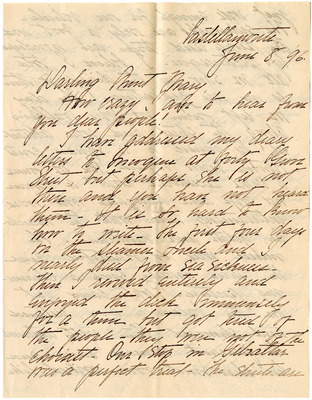 Castellamare
June 8. 96.
Darling Aunt Mary,
How crazy I am to hear from
you dear people!
I have addressed my diary
letters to Imogene at Forty
Street, but perhaps she is not
there and you have not heard
them - It is so hard to know
how to write - The first four days
on the steamer Sheila and I
nearly died from sea sickness -
then I revived entirely and
enjoyed the deck immensely
for a time but got tired of
the people - they were not of the
choicest - Our stop in Gibraltar
was a perfect treat - The streets are